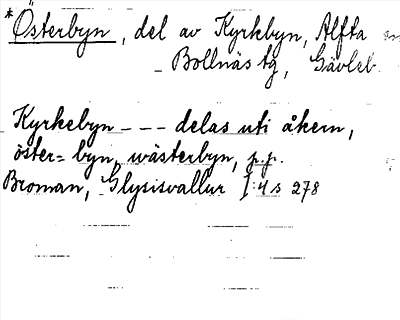 *Österbyn, del av Kyrkbyn, Alfta sn
Bollnäs tg, Gävleb.
Kyrkebyn - - - delas uti åkern,
öster= byn, wästerbyn, p.p.
Broman, Glysisvallur I:4 s 278